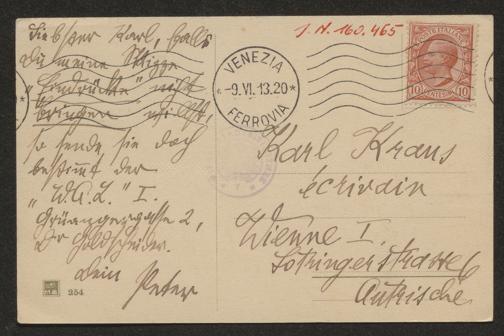 Liebster Karl, falls
Du meine Skizze
„Eindrücke" nicht
bringen willst,
so sende sie doch
bestimmt der
„W.A.Z." I.
Grünangergasse 2,
Dr Goldscheider.
Dein Peter
1. N. 160.465
VENEZIA
-9.VI.13.20
FERROVIA
POSTE ITALIANE
10 CENTESIMI 10
Karl Kraus
écrivain
Wienne I.
Lotringerstrasse 6
Autriche
254